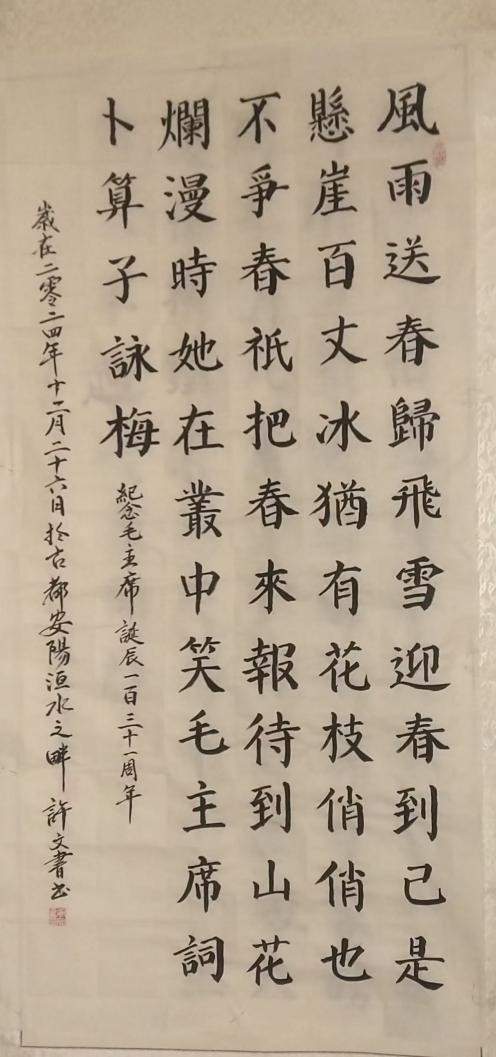 風雨送春歸飛雪迎春到己是
懸崖百丈冰猶有花枝俏俏也
不爭春祇把春來報待到山花
爛漫時她在叢中笑毛主席詞
卜算子詠梅
紀念毛主席誕辰一百三十一周年
歲在二零二四年十二月二十六日於古都安陽洹水之畔 許文書书